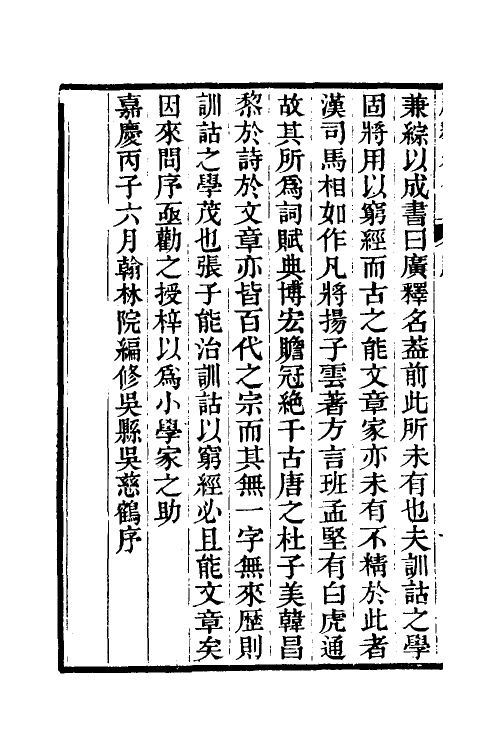 兼綜以成書曰廣釋名葢前此所未有也夫訓詁之學
固將用以窮經而古之能文章家亦未有不精於此者
漢司馬相如作凡將揚子雲著方言班孟堅有白虎通
故其所爲詞賦典博宏贍冠絶千古唐之杜子美韓昌
黎於詩於文章亦皆百代之宗而其無一字無來歴則
訓詁之學茂也張子能治訓詁以窮經必且能文章矣
因來問序亟勸之授梓以爲小學家之助
嘉慶丙子六月翰林院編修吳縣吳慈鶴序